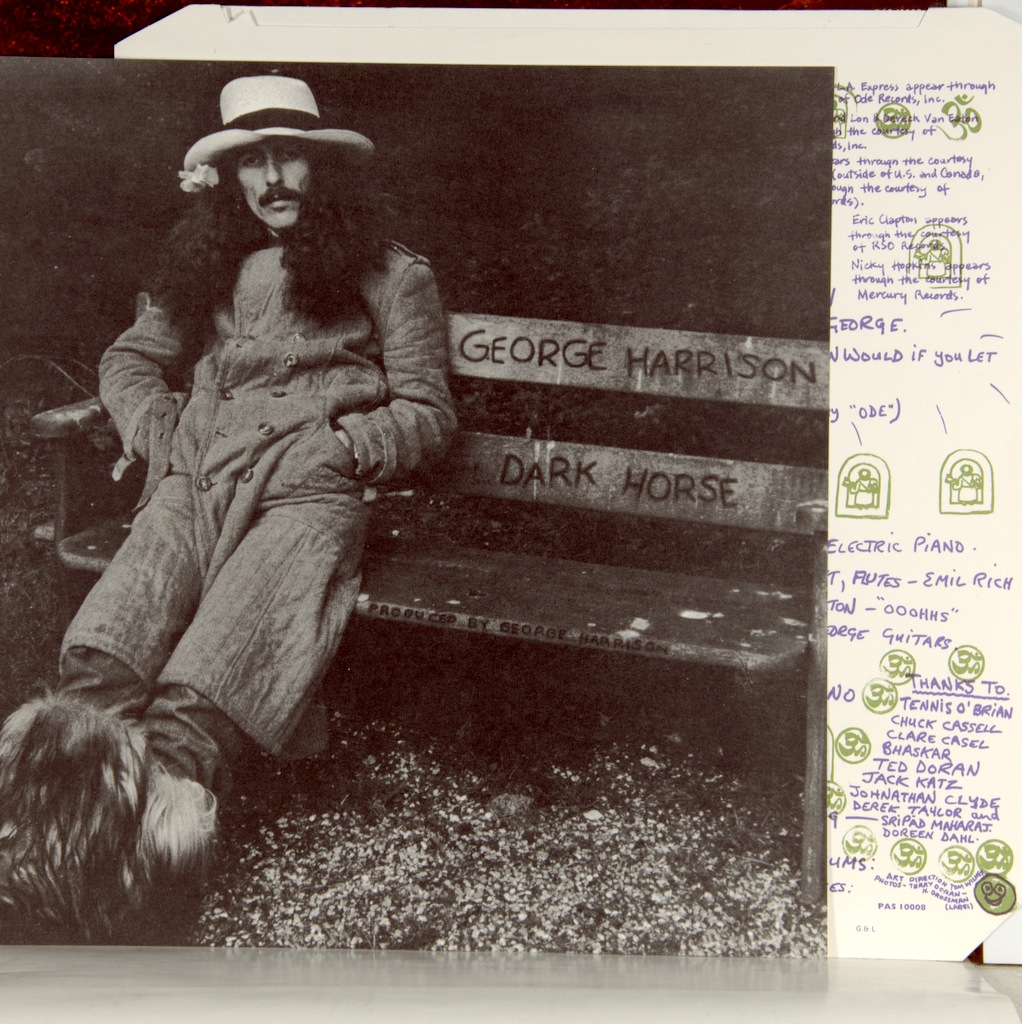 GEORGE HARRISON
DARK HORSE
PRODUCED BY GEORGE HARRISON
L.A. Express appear through
of Ode Records, Inc.
Lon & Derrek Van Eaton
h the courtesy of
ds, Inc.
ars through the courtesy
(outside of U.S. and Canada,
ough the courtesy of
rds).
Eric Clapton appears
through the courtesy
of RSO Records.
Nicky Hopkins appears
through the courtesy of
Mercury Records.
GEORGE.
N WOULD IF YOU LET
y "ODE")
ELECTRIC PIANO.
T, FLUTES - EMIL RICH
TON - "OOOHHS"
ORGE GUITARS
NO
THANKS TO.
TENNIS O'BRIAN
CHUCK CASSELL
CLARE CASEL
BHASKAR
TED DORAN
JACK KATZ
JOHNATHAN CLYDE
DEREK TAYLOR and
SRIPAD MAHARAJ.
DOREEN DAHL.
UMS:
ES:
ART DIRECTION TOM WILKES
PHOTOS - TERRY DORAN -
H. GROSSMAN
(LABEL)
PAS 10008
G & L